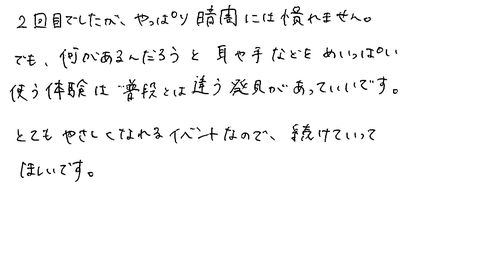 2回目でしたが、やっぱり暗闇には慣れません。
でも、何があるんだろうと耳や手などをめいっぱい
使う体験は普段とは違う発見があっていいです。
とてもやさしくなれるイベントなので、続けていって
ほしいです。